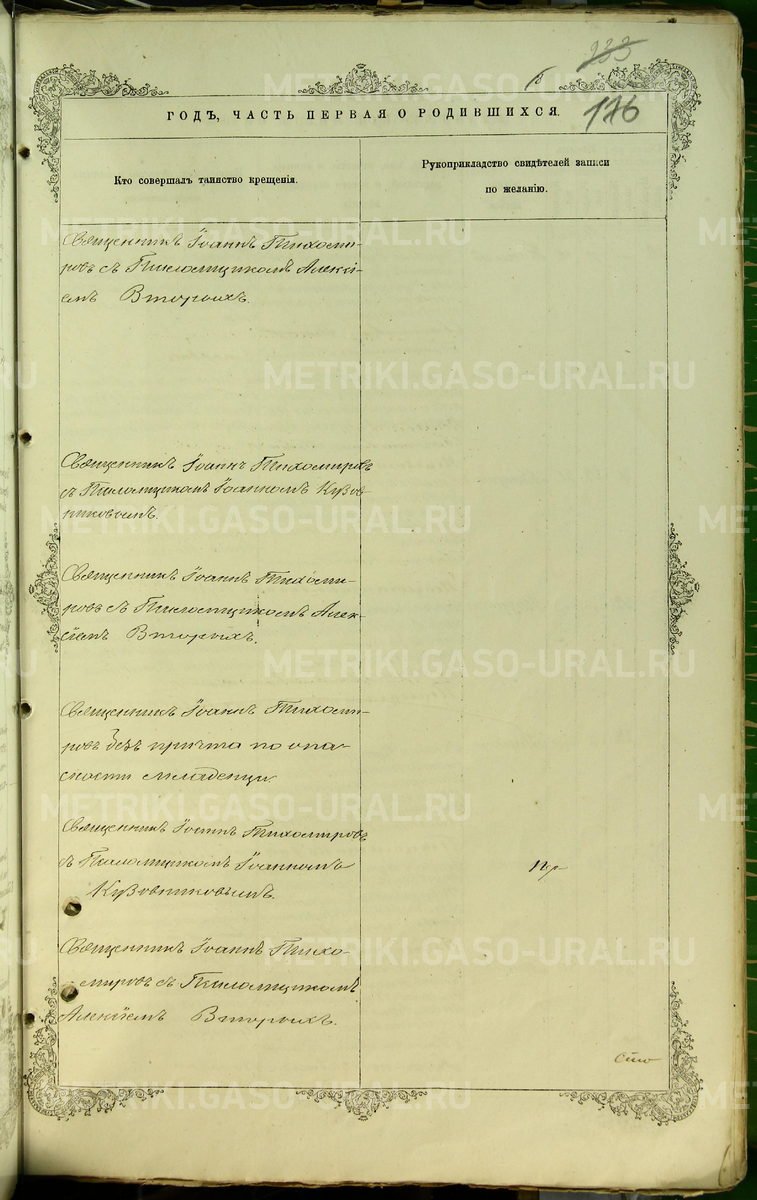 233
176
ГОДЪ, ЧАСТЬ ПЕРВАЯ О РОДИВШИХСЯ.
Кто совершалъ таинство крещенія.
Рукоприкладство свидѣтелей записи
по желанію.
Священникъ Іоаннъ Тихоми-
ровъ съ Псаломщикомъ Алексі-
емъ Вторыхъ.
Священникъ Іоаннъ Тихомировъ
съ Псаломщикомъ Іоанномъ Кузов-
никовымъ.
Священникъ Іоаннъ Тихоми-
ровъ съ Псаломщикомъ Алек-
сіемъ Вторыхъ.
Священникъ Іоаннъ Тихоми-
ровъ безъ причта по опа-
сности младенца.
Священникъ Іоаннъ Тихомировъ
съ Псаломщикомъ Іоанномъ
Кузовниковымъ.
Священникъ Іоаннъ Тихо-
мировъ съ Псаломщикомъ
Алексіемъ Вторыхъ.
METRIKI.GASO-URAL.RU